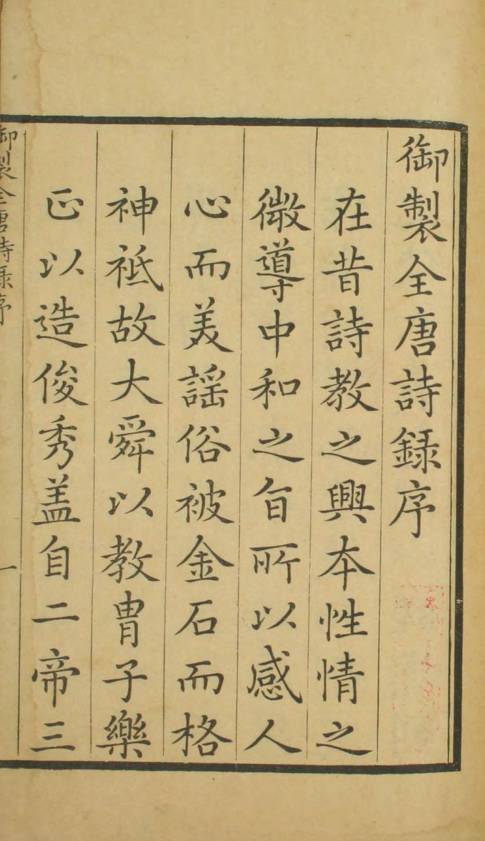 御製全唐詩録序
在昔詩教之興本性情之
微導中和之旨所以感人
心而美謡俗被金石而格
神祗故大舜以教胄子樂
正以造俊秀葢自二帝三
御製全唐詩録序
一